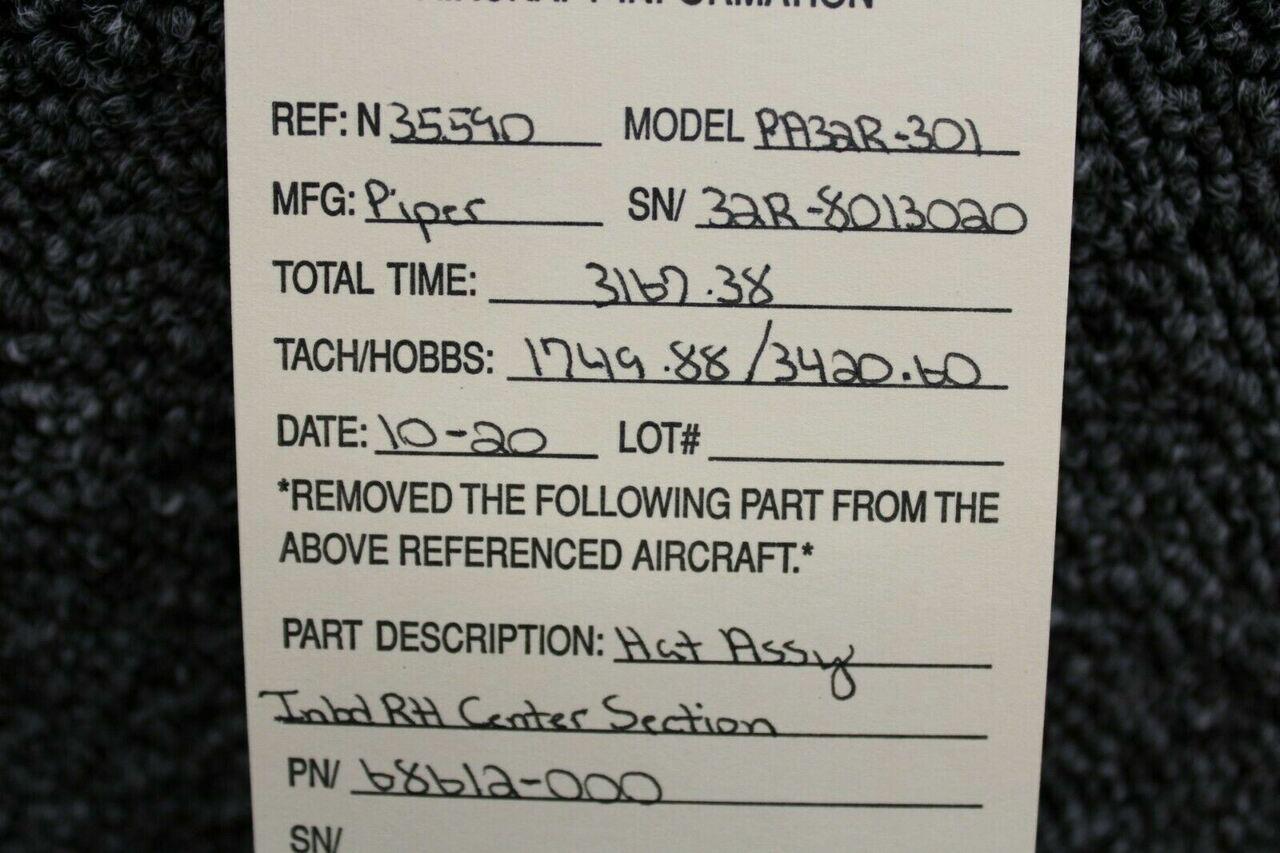 AIRCRAFT INFORMATION
REF: N 35590 MODEL PA32R-301
MFG: Piper SN/ 32R-8013020
TOTAL TIME: 3167.38
TACH/HOBBS: 1749.88/3420.60
DATE: 10-20 LOT#
*REMOVED THE FOLLOWING PART FROM THE
ABOVE REFERENCED AIRCRAFT.*
PART DESCRIPTION: Hat Assy
Inbd RH Center Section
PN/ 68612-000
SN/